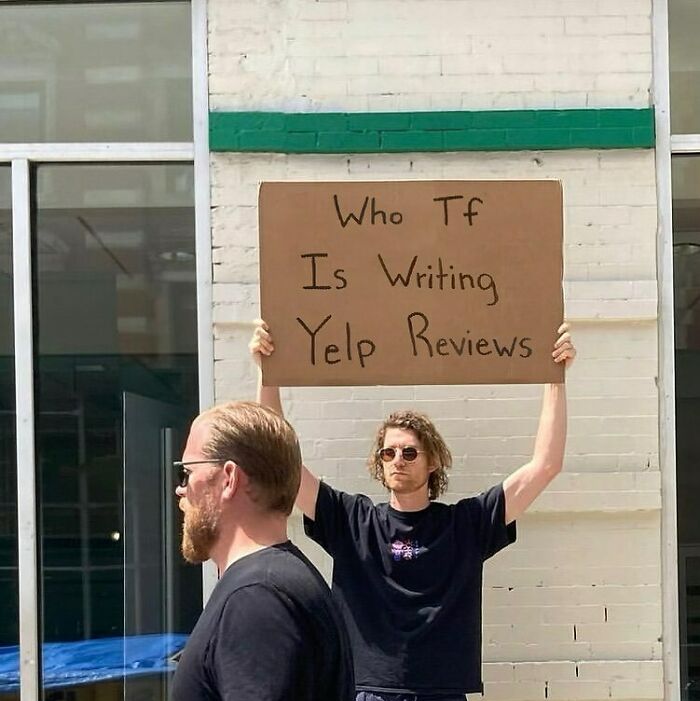 Who Tf
Is Writing
Yelp Reviews